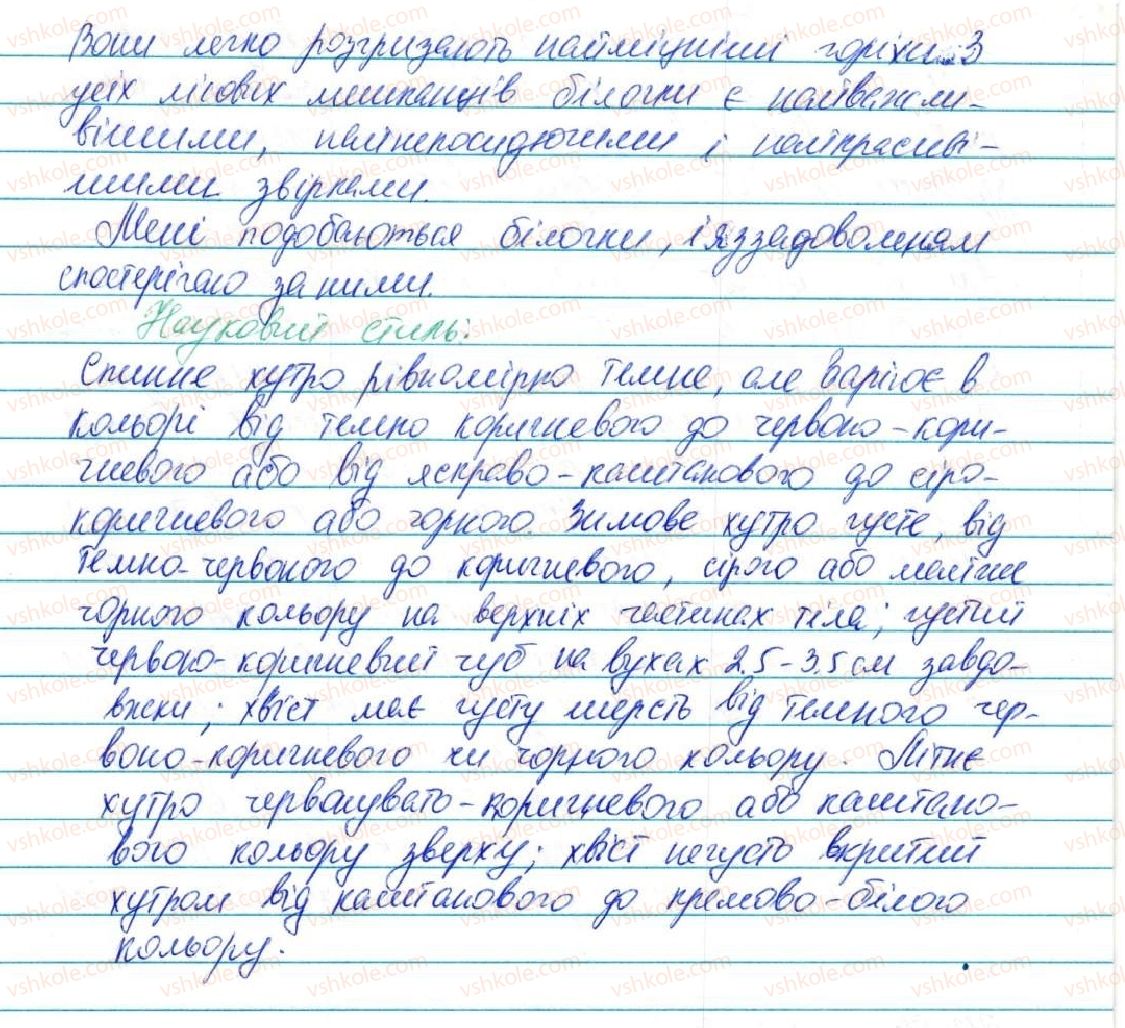 Вони легко розгризають найміцніші горіхи. З
усіх лісових мешканців білочки є найважли-
вішими, найнепосидючими і найкрасиві-
шими звірками.
Мені подобаються білочки, і я з задоволенням
спостерігаю за ними.
Науковий стиль:
Спинне хутро рівномірно темне, але варіює в
кольорі від темно коричневого до червоно-кори-
чневого або від яскраво-каштанового до сіро-
коричневого або чорного. Зимове хутро густе, від
темно-червоного до коричневого, сірого або майже
чорного кольору на верхніх частинах тіла; густий
червоно-коричневий чуб на вухах 2.5-3.5 см завдо-
вжки; хвіст має густу шерсть від темного чер-
воно-коричневого чи чорного кольору. Літнє
хутро червонувато-коричневого або каштано-
вого кольору зверху; хвіст негусто вкритий
хутром від каштанового до кремово-білого
кольору.